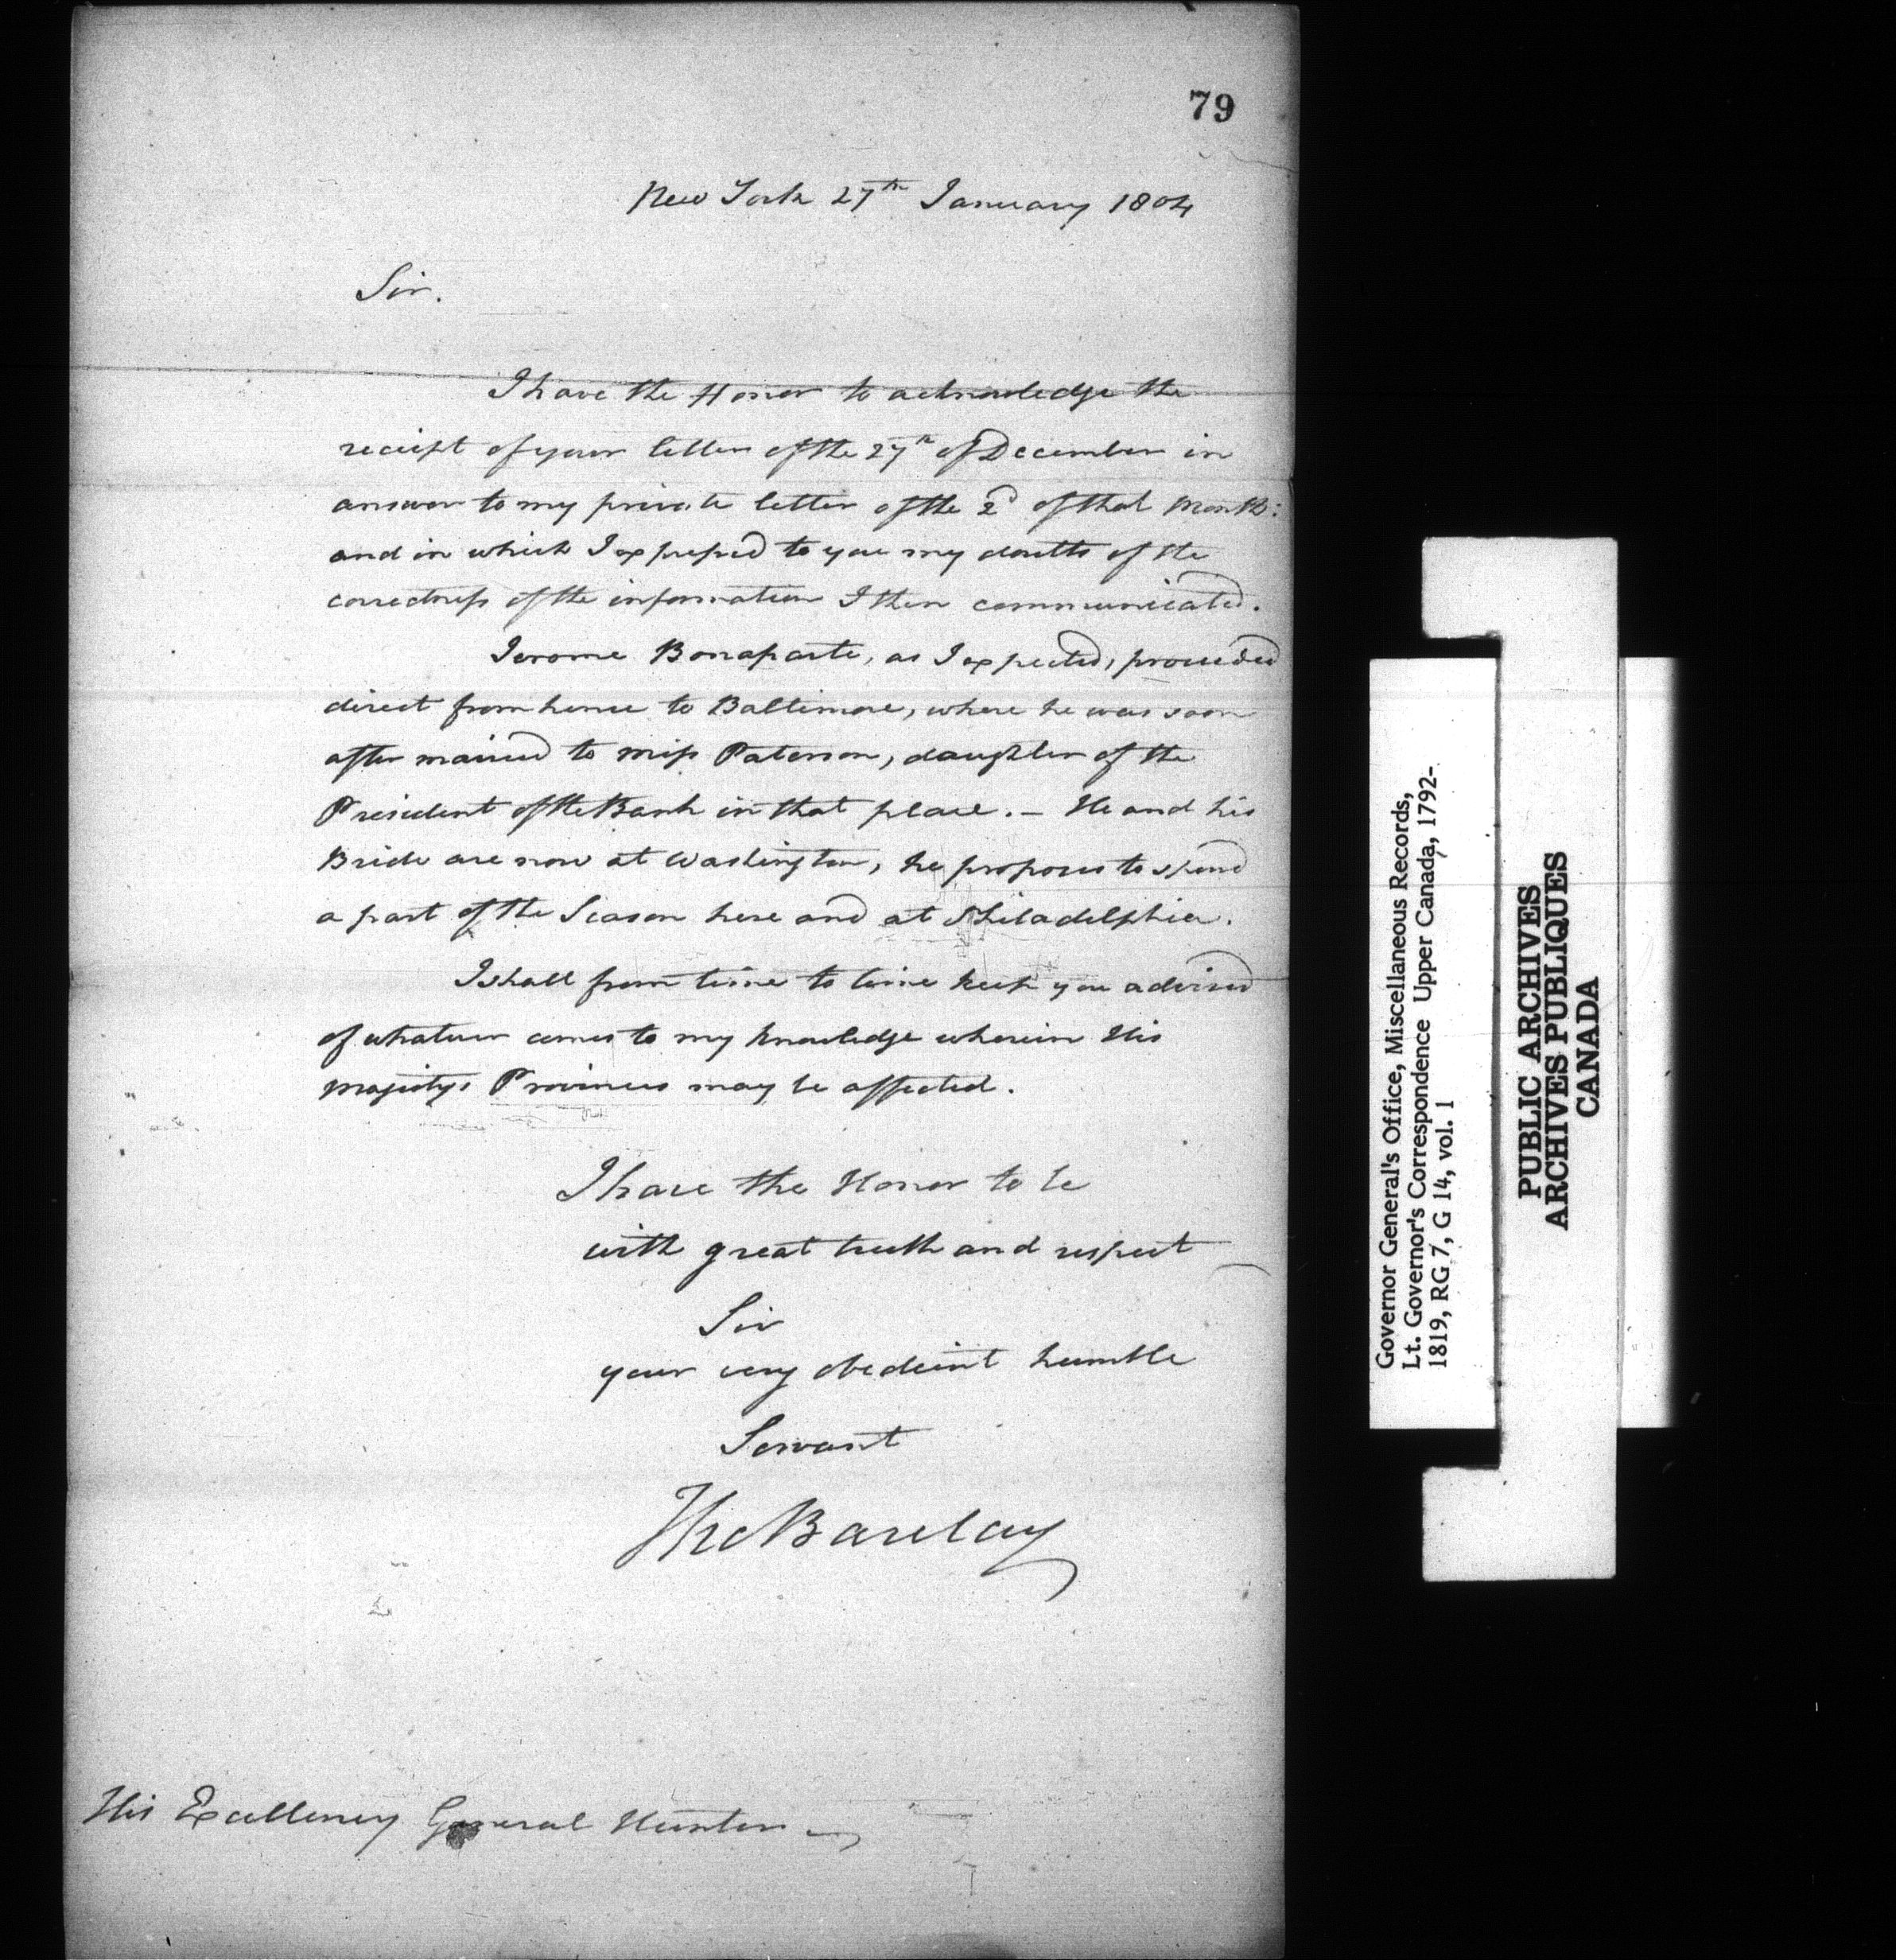 79
New York 27th January 1804
Sir.
I have the Honor to acknowledge the
receipt of your letter of the 27th of December in
answer to my private letter of the 2d of that Month:
and in which I expressed to you my doubts of the
correctness of the information I then communicated.
Jerome Bonaparte, as I expected, proceeded
direct from hence to Baltimore, where he was soon
after married to Miss Paterson, daughter of the
President of the Bank in that place. – He and his
Bride are now at Washington, he proposes to spend
a part of the Season here and at Philadelphia.
I shall from time to time keep you advised
of whatever comes to my knowledge wherein His
Majestys Provinces may be affected.
I have the Honor to be
with great truth and respect
Sir
your very obedient humble
Servant
Tho Barclay
His Excellency General Hunter
Governor General's Office, Miscellaneous Records,
Lt. Governor's Correspondence Upper Canada, 1792-
1819, RG 7, G 14, vol. 1
PUBLIC ARCHIVES
ARCHIVES PUBLIQUES
CANADA